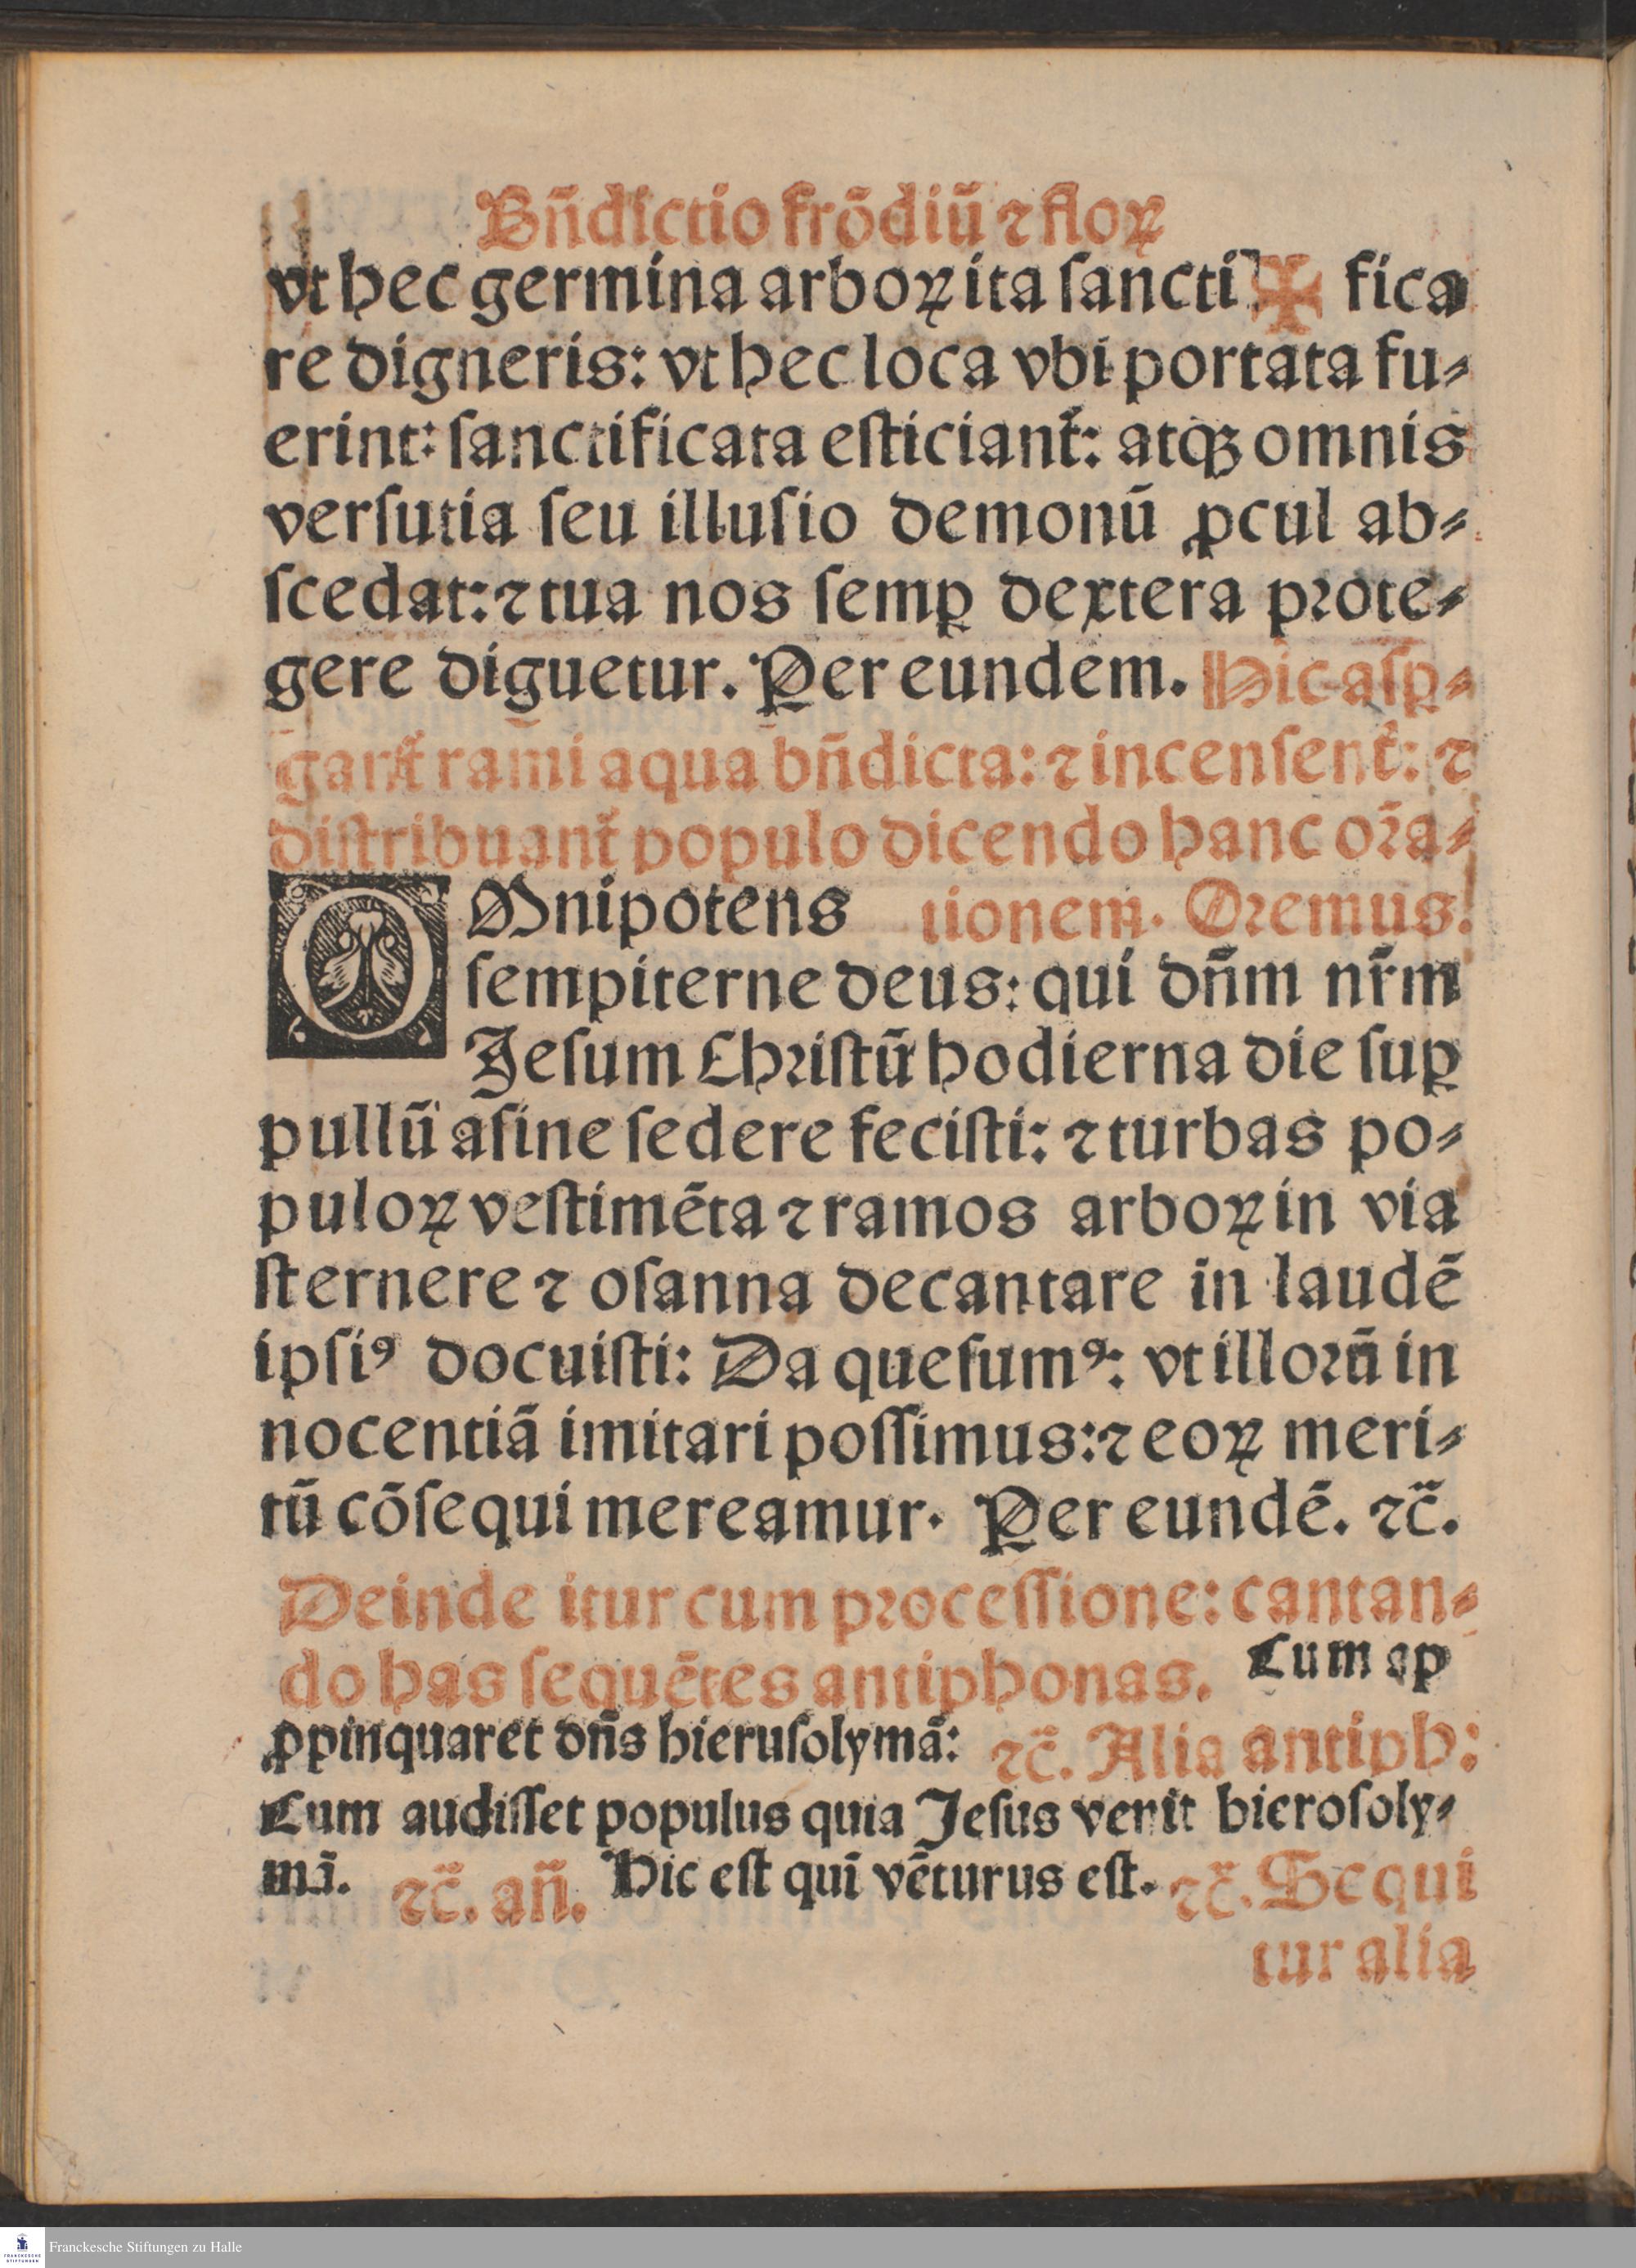 Bn̄dictio frōdiū ⁊ floꝝ
vt hec germina arboꝝ ita ſancti ✠ fica
re digneris: vt hec loca vbi portata fu⸗
erint: ſanctificata eſticiant᷑: atqꝫ omnis
verſutia ſeu illuſio demonū ꝓcul ab⸗
ſcedat: ⁊ tua nos ſemꝑ dextera prote⸗
gere diguetur. Per eundem. Hic aſꝑ⸗
gant᷑ rami aqua bn̄dicta: ⁊ incenſent᷑: ⁊
diſtribuant᷑ populo dicendo hanc or̄a⸗
OMnipotens tionem. Oremus.
ſempiterne deus: qui dn̄m nr̄m
Jeſum Chriſtū hodierna die ſuꝑ
pullū aſine ſedere feciſti: ⁊ turbas po⸗
puloꝝ veſtimēta ⁊ ramos arboꝝ in via
ſternere ⁊ oſanna decantare in laudē
ipſiꝰ docuiſti: Da queſumꝰ: vt illorū in
nocentiā imitari poſſimus: ⁊ eoꝝ meri⸗
tū cōſequi mereamur. Per eundē. ⁊c̄.
Deinde itur cum proceſſione: cantan⸗
do has ſequētes antiphonas. Cum ap
ꝓpinquaret dn̄s hieruſolymā: ⁊c̄. Alia antiph:
Cum audiſſet populus quia Jeſus venit hieroſoly⸗
mā. ⁊c̄. an̄. Hic eſt qui vēturus eſt. ⁊c̄. Sequi
tur alia
Franckesche Stiftungen zu Halle